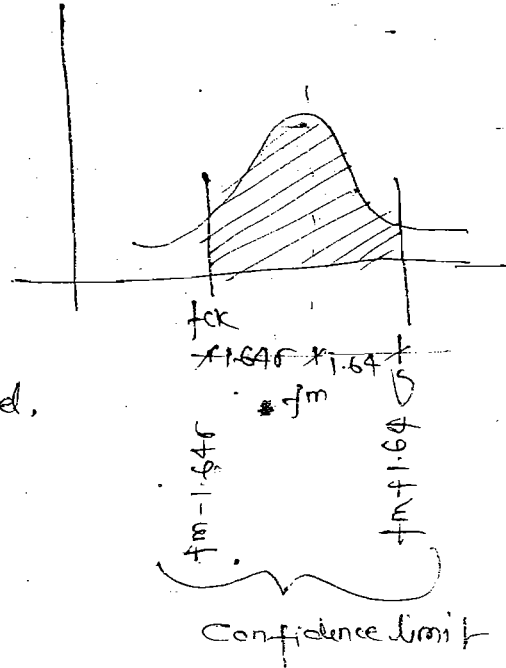 fck
1.64σ 1.64σ
d.
fm
fm-1.64σ
fm+1.64σ
Confidence limit